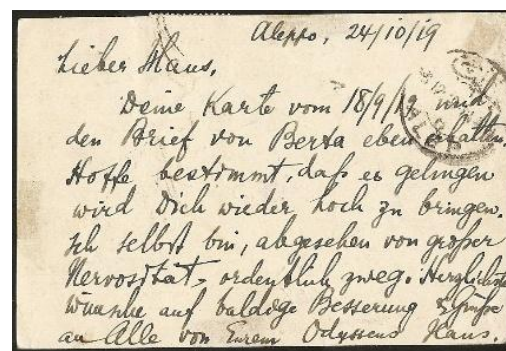 Aleppo, 24/10/19
Lieber Klaus,
Deine Karte vom 18/9/19 und
den Brief von Berta eben erhalten.
Hoffe bestimmt, daß es gelingen
wird Dich wieder hoch zu bringen.
Ich selbst bin, abgesehen von großer
Nervosität, ordentlich zweg. Herzlichste
Wünsche auf baldige Besserung & Grüße
an Alle von Eurem Odysseus Hans.